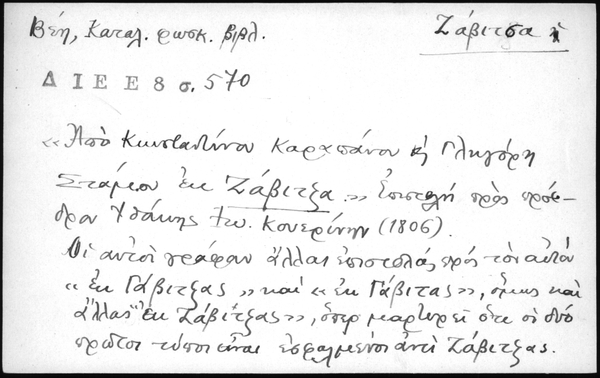 Βέη, Καταλ. ρωσκ. βιβλ.
Ζάβιτσα ἡ
Δ Ι Ε Ε 8 σ. 570
«Ἀπὸ Κωνσταντίνου Καραπάνου ἢ Γληγόρη
Στάμου ἐκ Ζάβιτζα.» Ἐπιστολὴ πρὸς πρόε-
δρον Ἰθάκης Ἰω. Κονερίνην (1806).
Οἱ αὐτοὶ γράφαν ἄλλας ἐπιστολὰς πρὸς τὸν αὐτὸν
«ἐκ Γάβιτζας» καὶ «ἐκ Γάβιτας», ὅμως καὶ
ἄλλας "ἐκ Ζάβιτζας», ὅπερ μαρτυρεῖ ὅτι οἱ δύο
πρῶτοι τύποι εἶναι ἐσφαλμένοι ἀντὶ Ζάβιτζας.